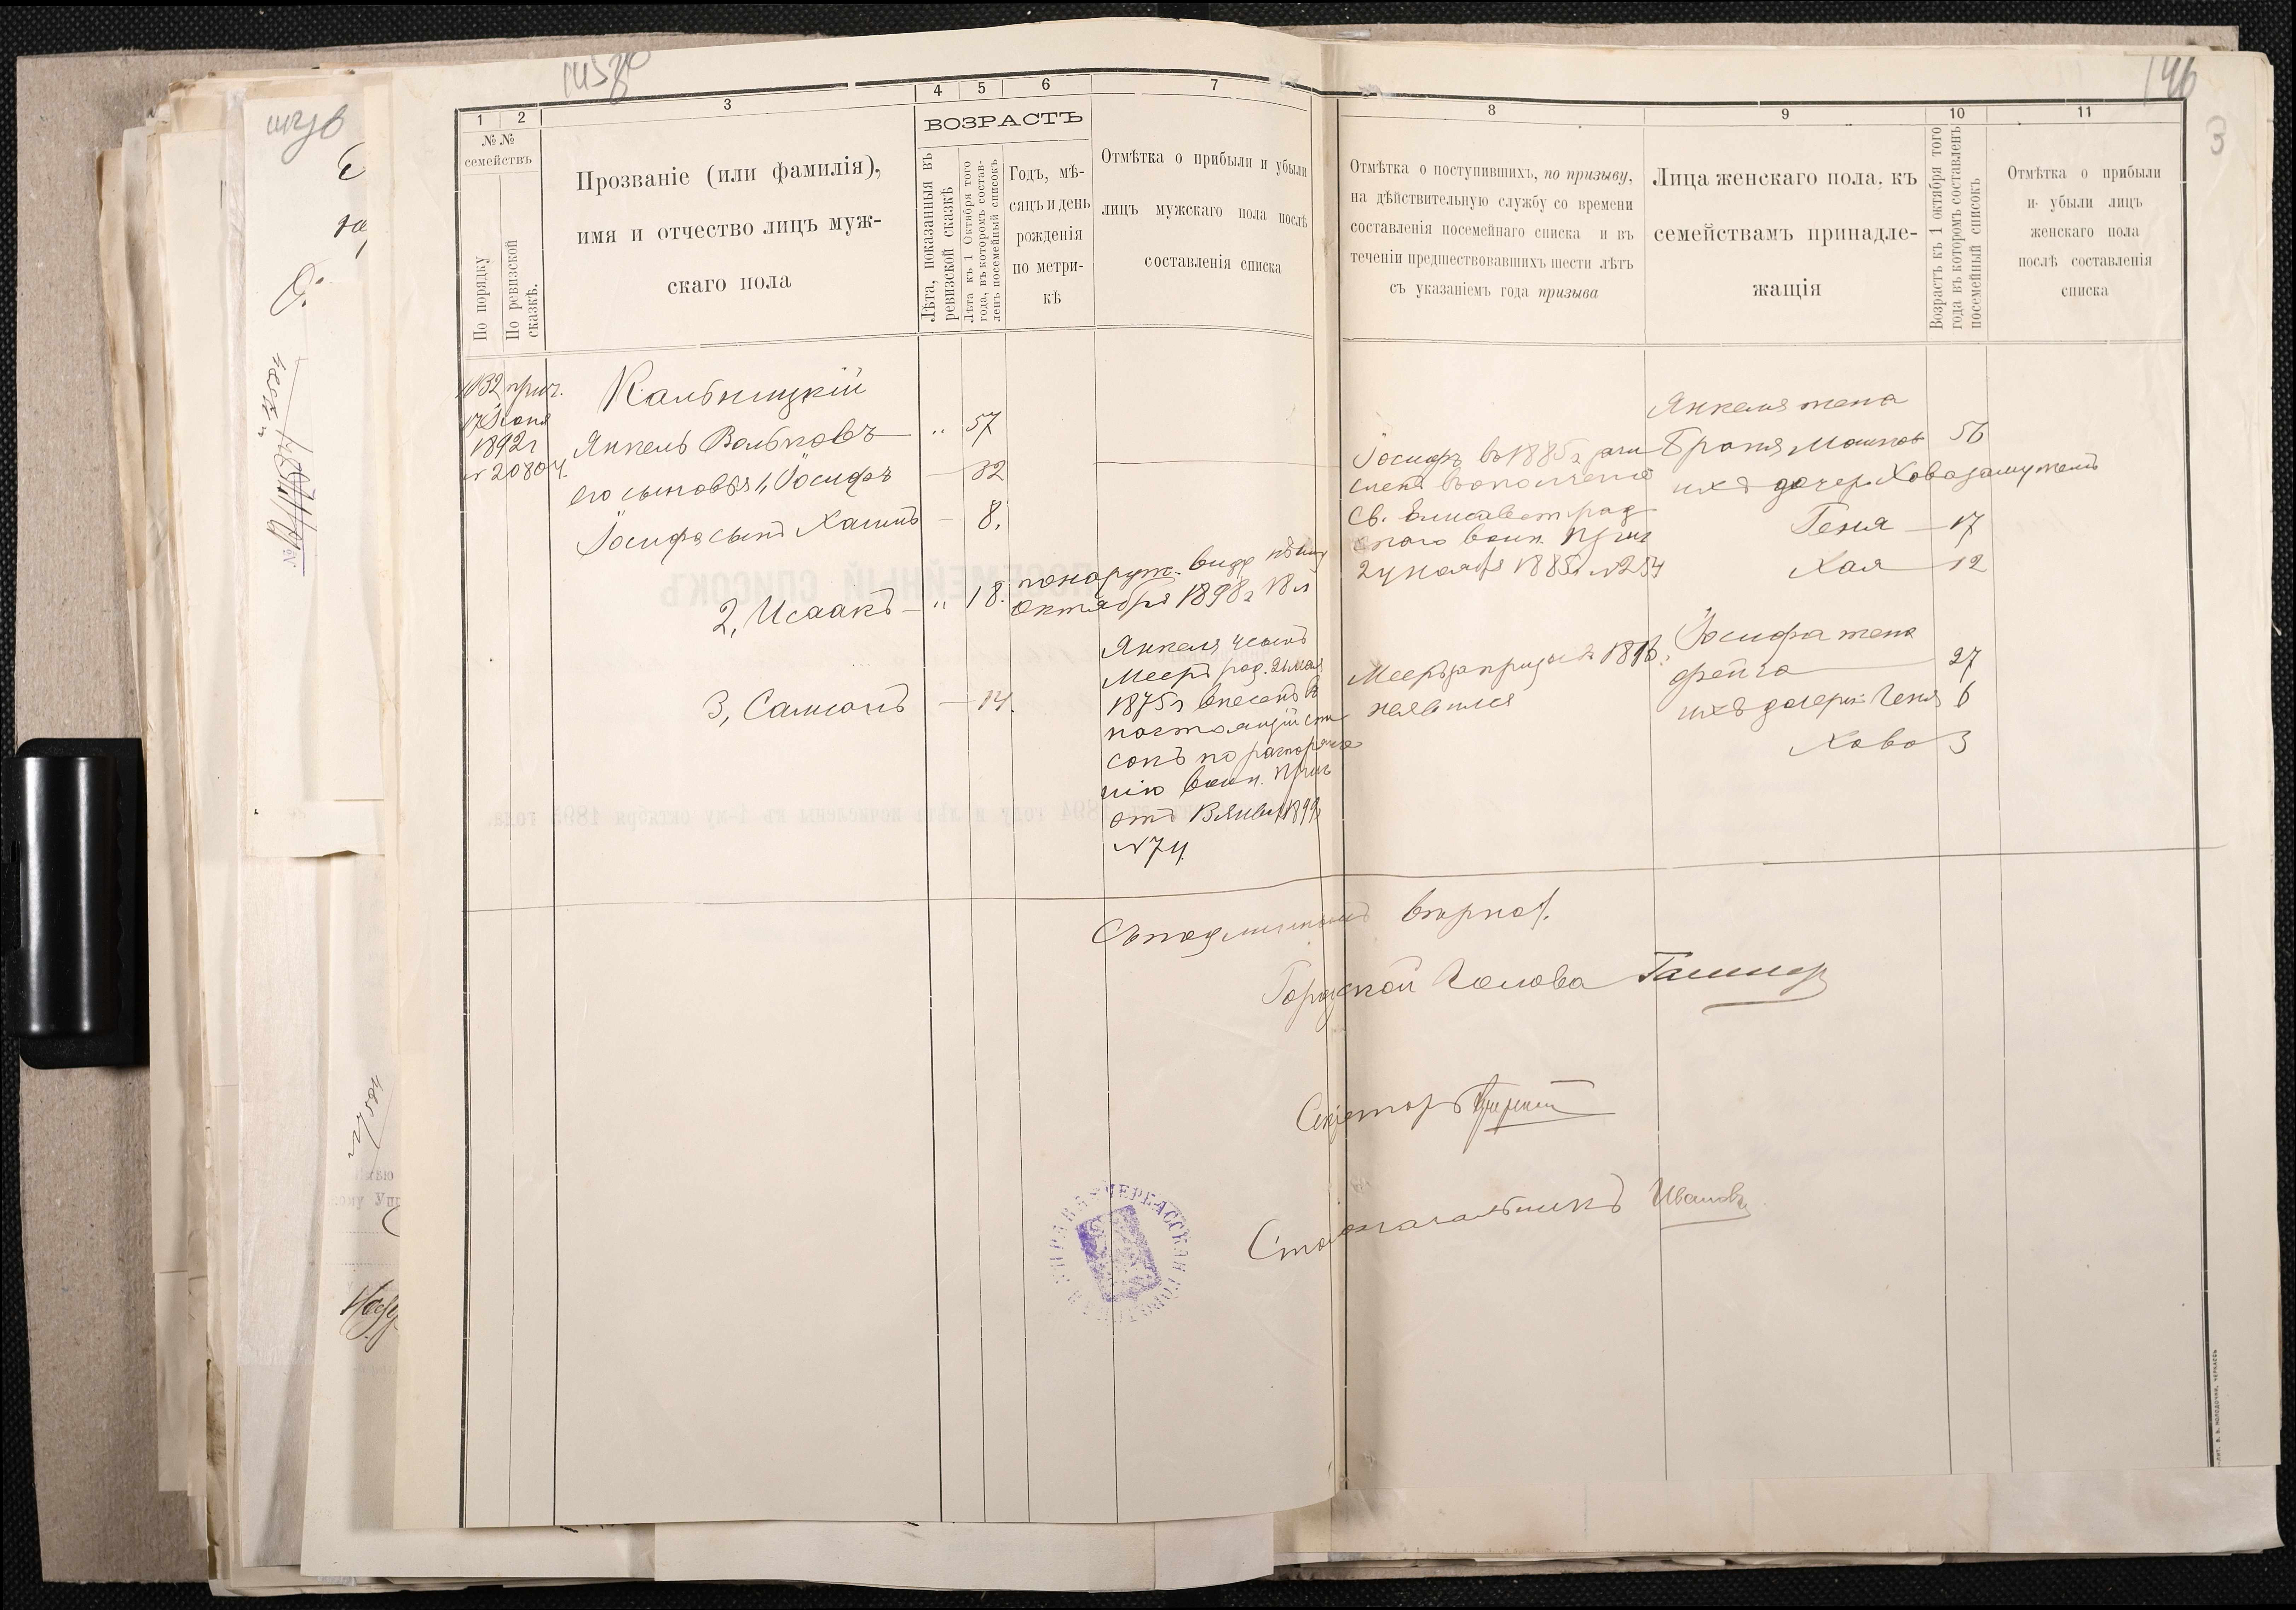 146
3
1 2 3 4 5 6 7
№№
семействъ
По порядку
По ревизской
сказкѣ.
Прозваніе (или фамилія),
имя и отчество лицъ муж-
скаго пола
ВОЗРАСТЪ
Лѣта, показанныя въ
ревизской сказкѣ
Лѣта къ 1 Октября того
года, въ которомъ состав-
ленъ посемейный списокъ
Годъ, мѣ-
сяцъ и день
рожденія
по метри-
кѣ
Отмѣтка о прибыли и убыли
лицъ мужскаго пола послѣ
составленія списка
1032 прич.
17 Іюня
1892 г
№ 20804.
Кальницкій
Янкель Вольковъ " 57
его сыновья 1, Іосифъ — 32
Іосифа сынъ Хаимъ — 8.
2, Исаакъ — " 18.
3, Самсонъ — 14.
по наруж. виду
Октября 1898 г 18 л
Янкеля 4 сынъ
Мееръ род. 21 мая
1875 г внесенъ въ
настоящій спи
сокъ по распоряже
нію воин. прис
отъ Январ 1899
№ 74.
8 9 10 11
Отмѣтка о поступившихъ, по призыву,
на дѣйствительную службу со времени
составленія посемейнаго списка и въ
теченіи предшествовавшихъ шести лѣтъ
съ указаніемъ года призыва
Лица женскаго пола, къ
семействамъ принадле-
жащія
Возрастъ къ 1 октября того
года въ которомъ составленъ
посемейный списокъ
Отмѣтка о прибыли
и убыли лицъ
женскаго пола
послѣ составленія
списка
Іосифъ въ 1885 г зачи
сленъ въ ополченіе
Св. Елисаветград
скаго воин. прис
24 ноября 1885 г № 254
Мееръ
неявился
Янкеля жена
Броня Мошков 56
ихъ дочер. Хова замужемъ
Геня — 17
Хая — 12
Іосифа жена
Фейга 27
ихъ дочери: Геня 6
Хова 3
Съ подлиннымъ вѣрно.
Городской Голова
Секретарь
Столоначальникъ Ивановъ
ЧЕРКАССКАЯ ГОРОДСКАЯ УПРАВА